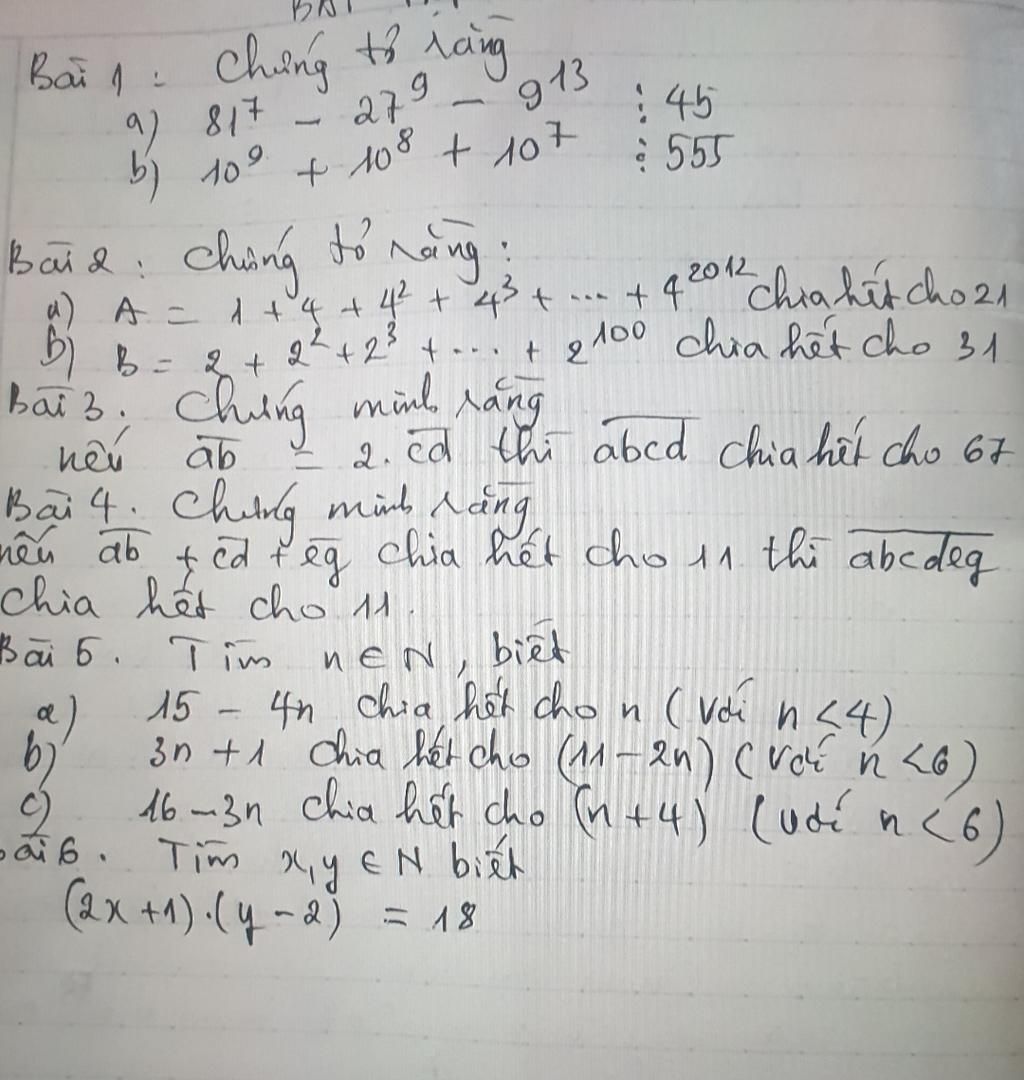 Bài 1 : Chứng tỏ rằng
a) 81⁷ - 27⁹ - 9¹³ ⋮ 45
b) 10⁹ + 10⁸ + 10⁷ ⋮ 555
Bài 2 : Chứng tỏ rằng :
a) A = 1 + 4 + 4² + 4³ + ... + 4²⁰¹² chia hết cho 21
b) B = 2 + 2² + 2³ + ... + 2¹⁰⁰ chia hết cho 31
Bài 3. Chứng minh rằng
nếu a̅b̅ = 2. c̅d̅ thì a̅b̅c̅d̅ chia hết cho 67
Bài 4. Chứng minh rằng
nếu a̅b̅ + c̅d̅ + e̅g̅ chia hết cho 11 thì a̅b̅c̅d̅e̅g̅
chia hết cho 11.
Bài 5. Tìm n ∈ N, biết
a) 15 - 4n chia hết cho n (với n < 4)
b) 3n + 1 chia hết cho (11 - 2n) (với n < 6)
c) 16 - 3n chia hết cho (n + 4) (với n < 6)
bài 6. Tìm x, y ∈ N biết
(2x + 1).(y - 2) = 18